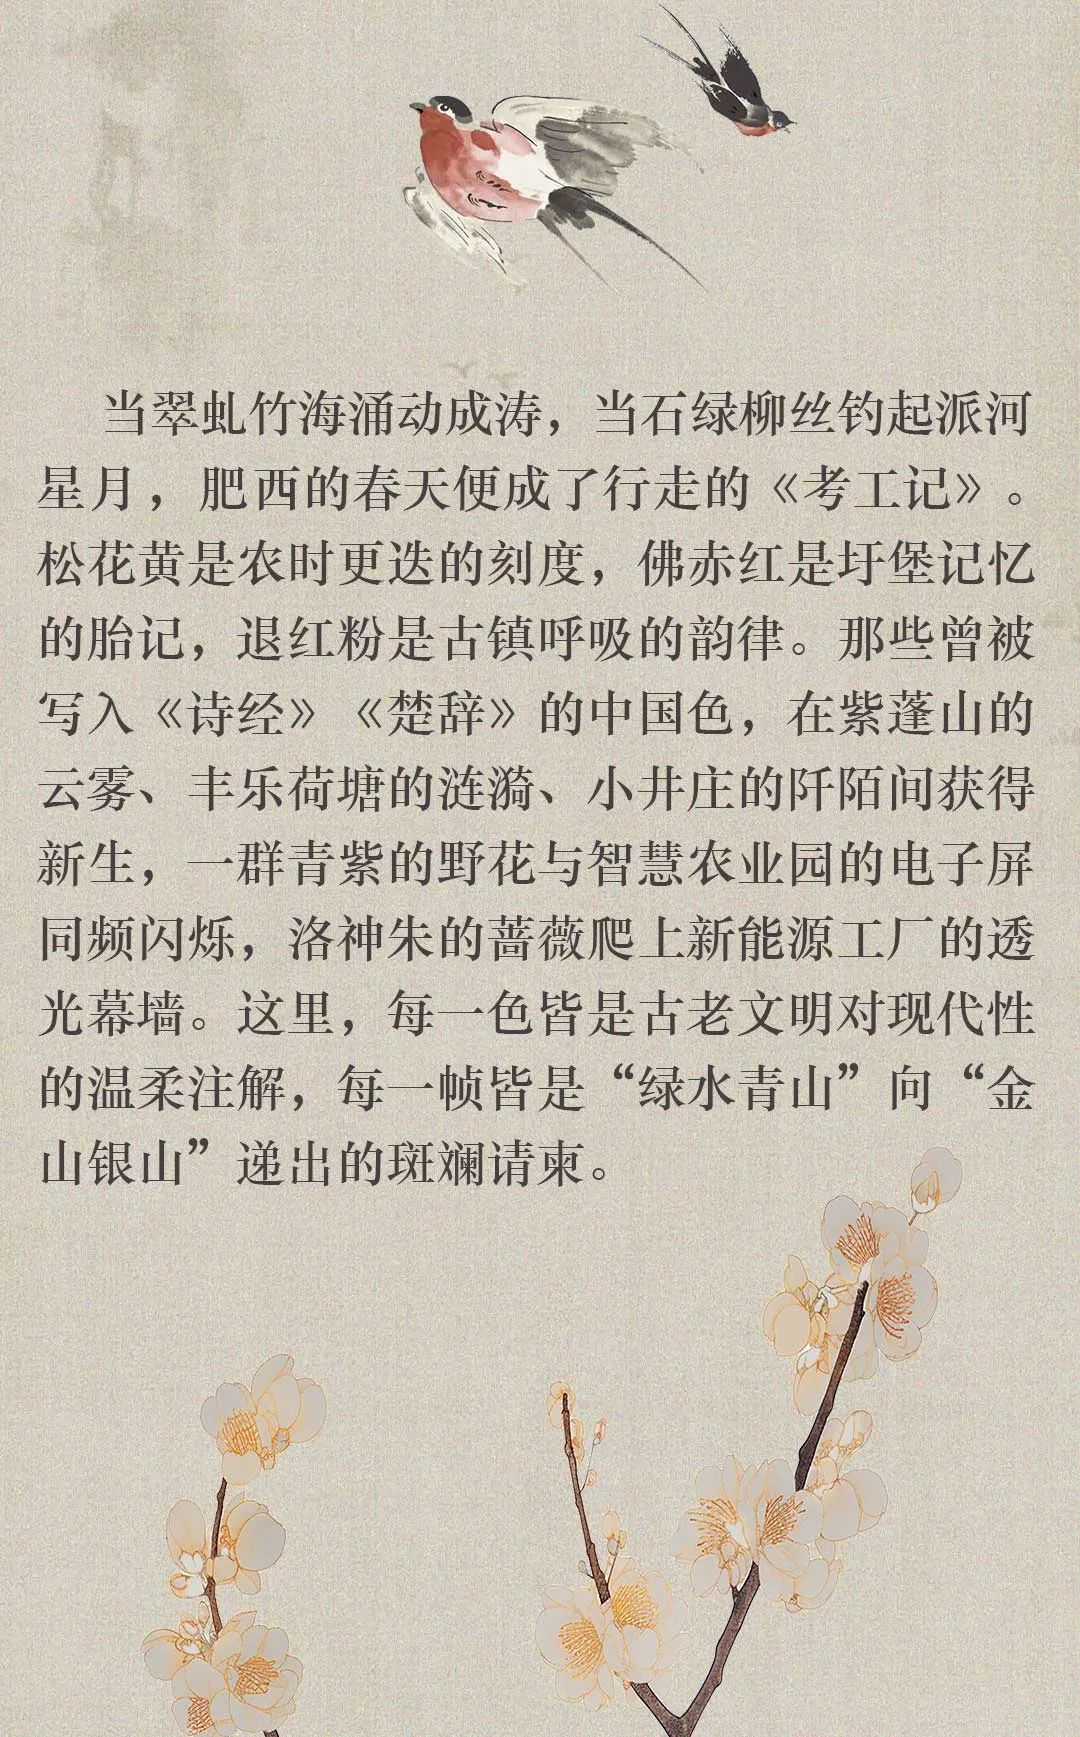 当翠虬竹海涌动成涛，当石绿柳丝钓起派河
星月，肥西的春天便成了行走的《考工记》。
松花黄是农时更迭的刻度，佛赤红是圩堡记忆
的胎记，退红粉是古镇呼吸的韵律。那些曾被
写入《诗经》《楚辞》的中国色，在紫蓬山的
云雾、丰乐荷塘的涟漪、小井庄的阡陌间获得
新生，一群青紫的野花与智慧农业园的电子屏
同频闪烁，洛神朱的蔷薇爬上新能源工厂的透
光幕墙。这里，每一色皆是古老文明对现代性
的温柔注解，每一帧皆是“绿水青山”向“金
山银山”递出的斑斓请柬。